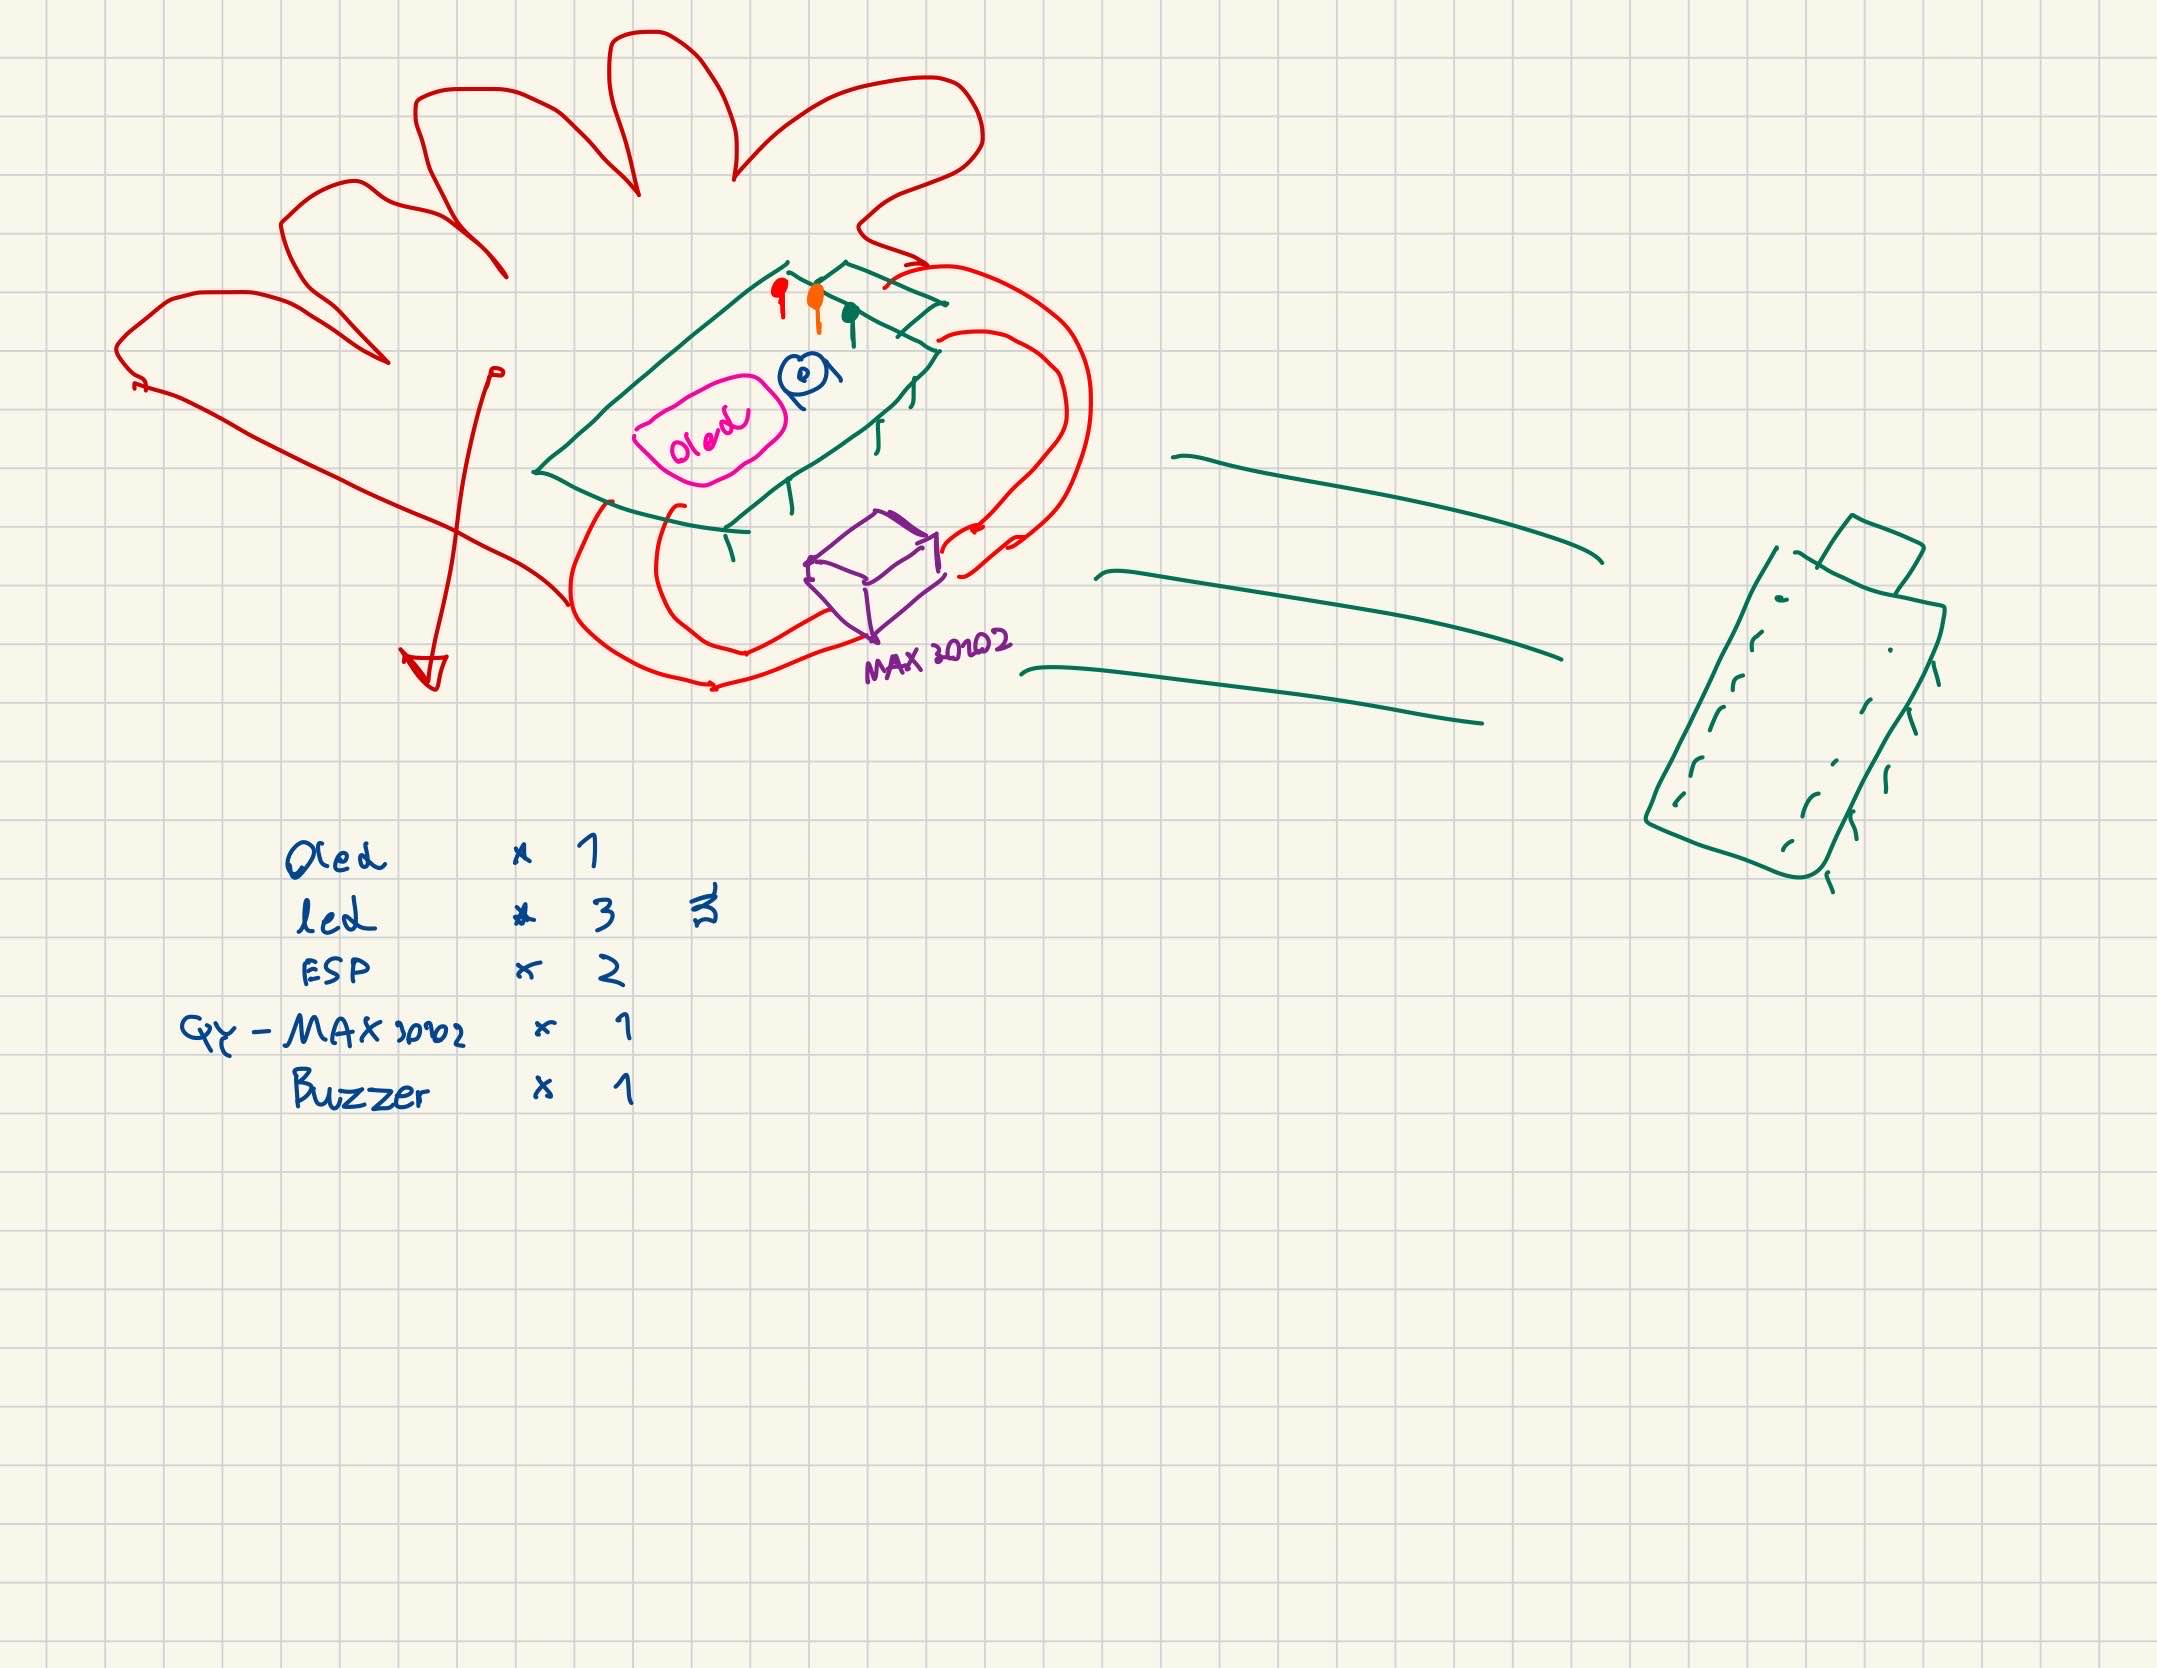 Oled
MAX 30102
Oled x 1
led x 3
ESP x 2
GY-MAX30102 x 1
Buzzer x 1